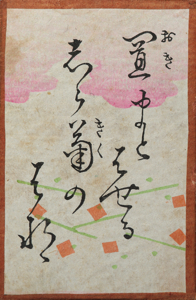 置まどはせる
おき
しら菊の
きく
はな